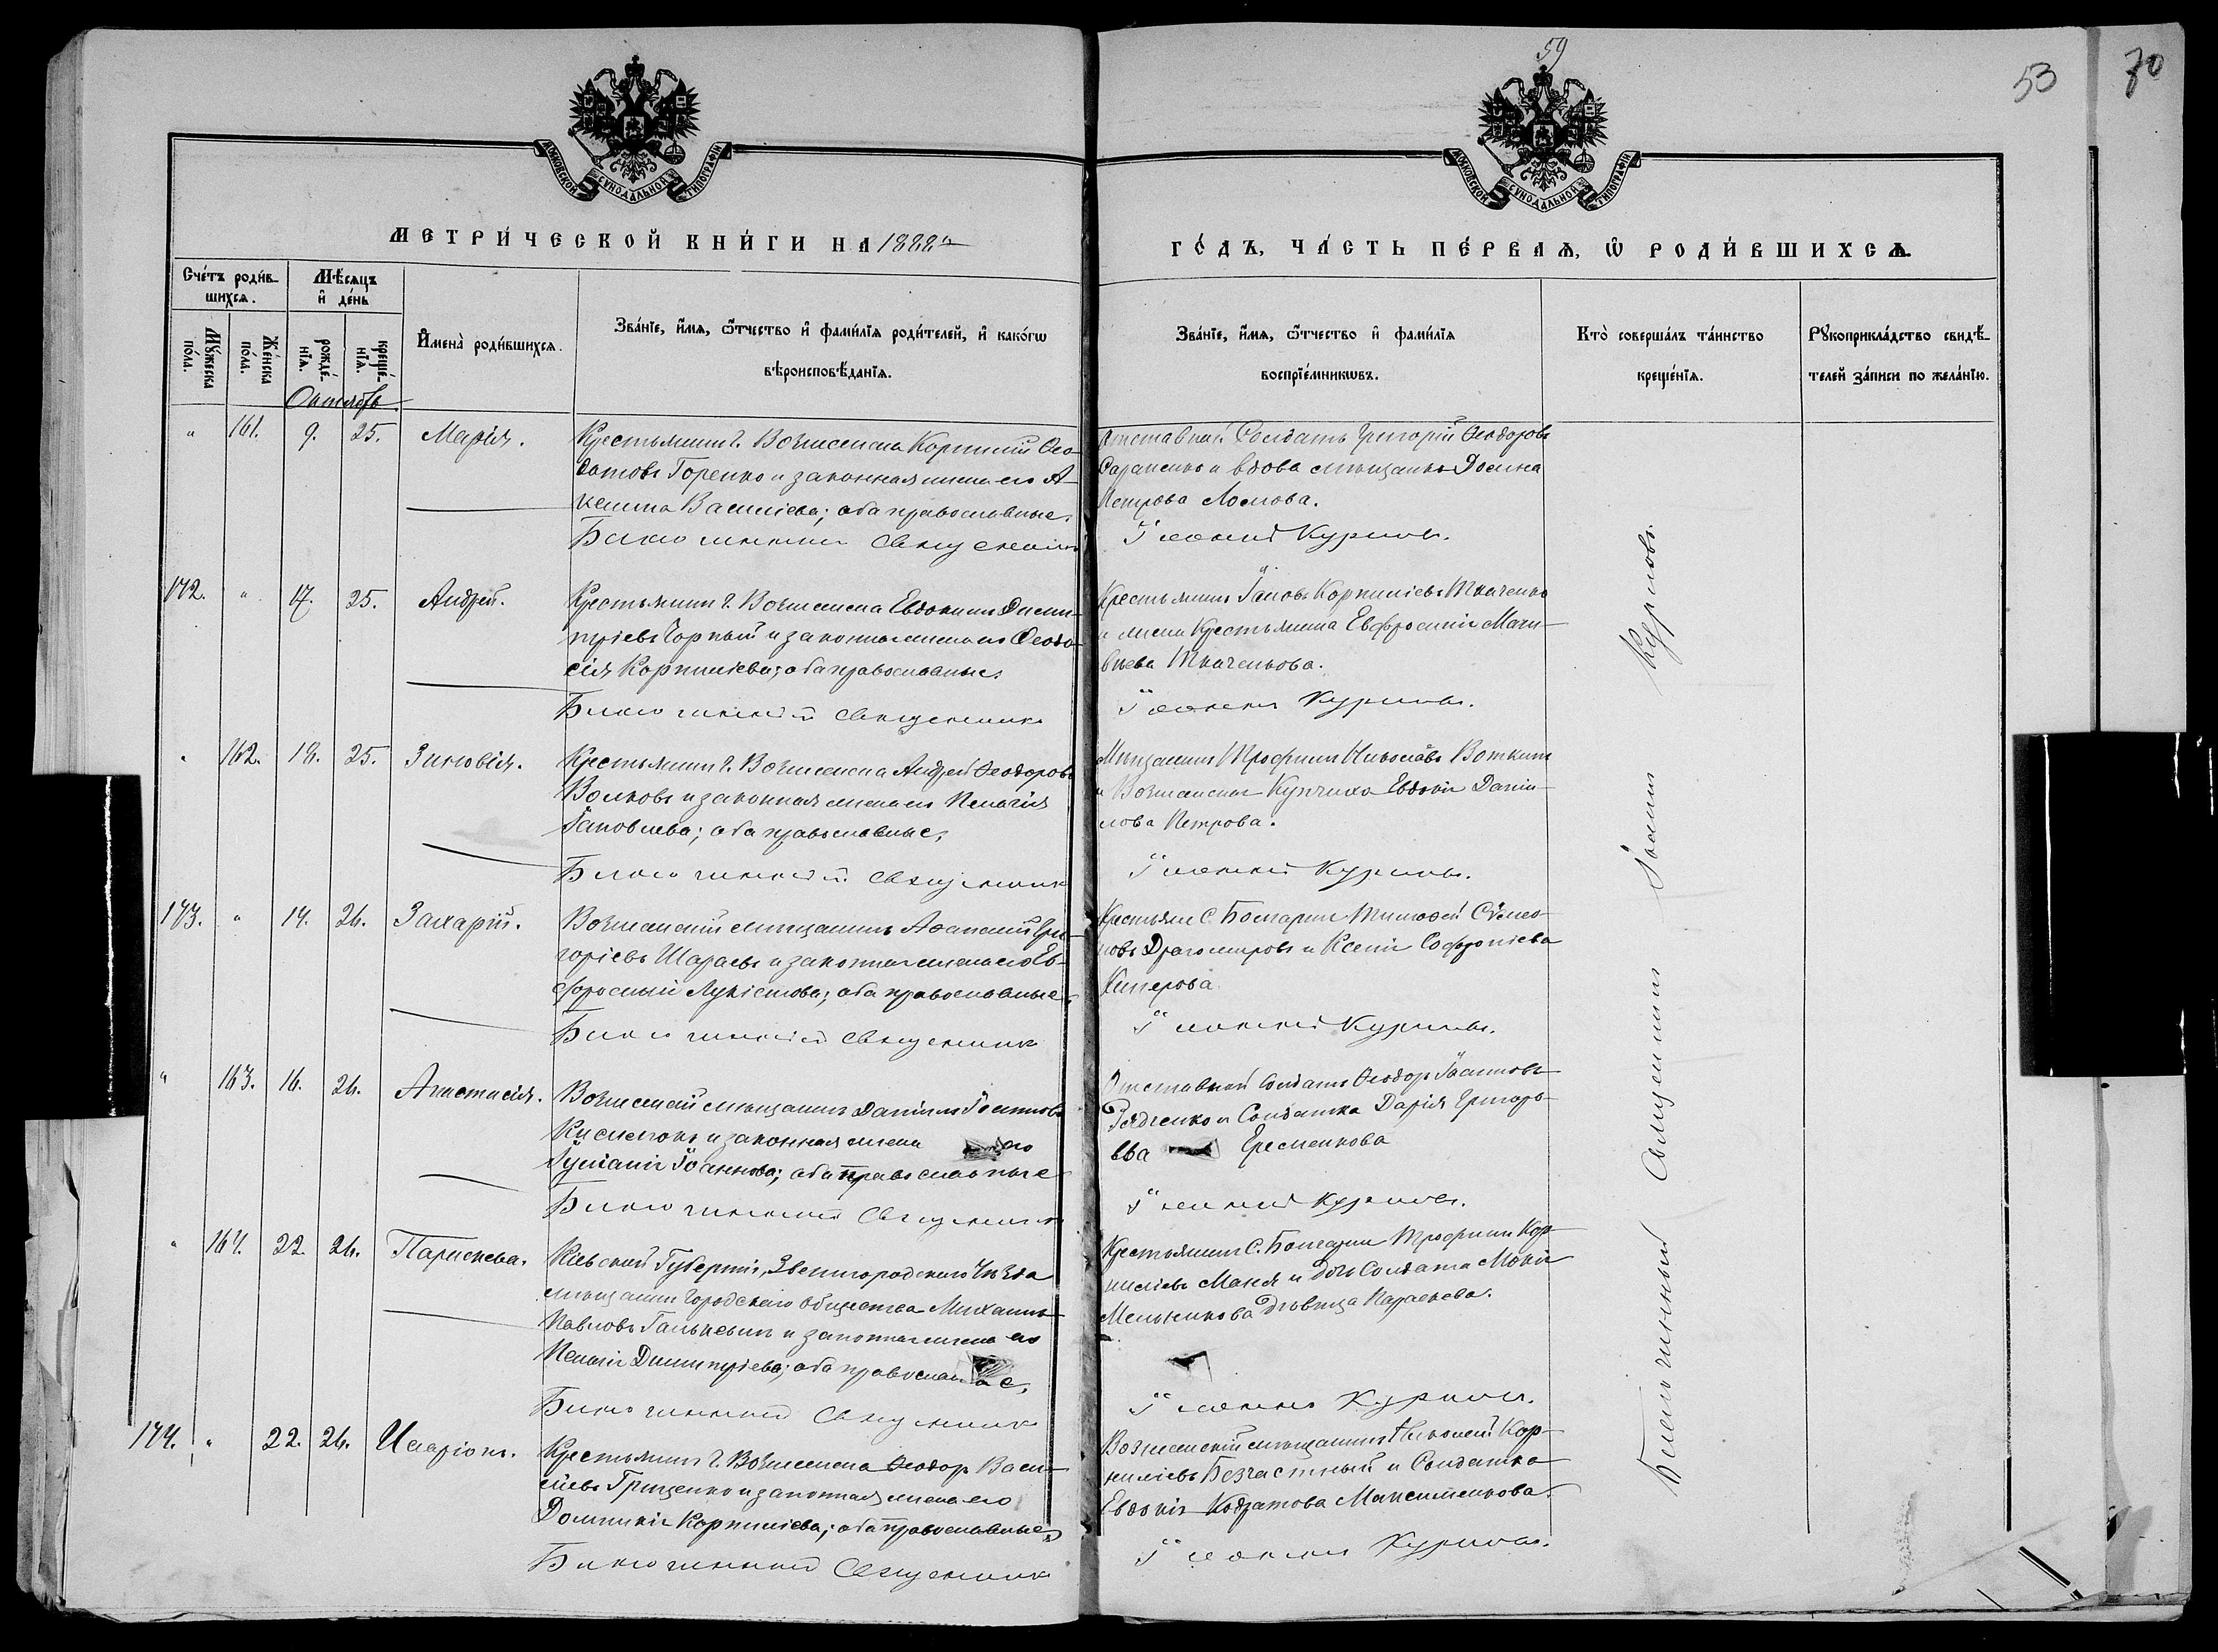 59
53
70
МОСКОВСКОЙ СѴНОДАЛЬНОЙ ТИПОГРАФІИ
МОСКОВСКОЙ СѴНОДАЛЬНОЙ ТИПОГРАФІИ
МЕТРИ́ЧЕСКОЙ КНИ́ГИ НА 1888
ГО́ДЪ, ЧА́СТЬ ПЕ́РВАѦ, Ѡ РОДИ́ВШИХСѦ
Сче́тъ роди́в-
шихсѧ.
Мѣ́сѧцъ
и҆ де́нь
Мꙋ́жеска
по́ла.
Же́нска
по́ла.
рожде́-
нїѧ.
креще́-
нїѧ.
И҆мена̀ роди́вшихсѧ.
Зва́нїе, и҆́мѧ, ѻ҆́тчество и҆ фами́лїѧ роди́телей, и҆ како́гѡ
вѣроисповѣ́данїѧ.
Зва́нїе, и҆́мѧ, ѻ҆́тчество и҆ фами́лїѧ
воспрїе́мникѡвъ.
Кто̀ соверша́лъ та́инство
креще́нїѧ.
Рꙋкоприкла́дство свидѣ́-
телей за́писи по жела́нїю.
Октябрь
" 161. 9. 25. Марія.
Крестьянинъ г. Вознесенска Корнилій Ѳео-
дотовъ Горенко и законная жена его А-
келина Васильева; оба православные.
Благочинный Священникъ
Отставный Солдатъ Григорій Ѳеодоровъ
и вдова мѣщанка Домна
Петрова Ломова.
Іоаннъ Куриловъ.
172. " 17. 25. Андрей.
Крестьянинъ г. Вознесенска Евдокимъ Дими-
тріевъ Чорный и законная жена его Ѳеодо-
сія Корниліева; оба православные.
Благочинный Священникъ
Крестьянинъ Іаковъ Корниліевъ Ткаченко
и жена Крестьянина Евфросинія Мат-
вѣева Ткаченкова.
Іоаннъ Куриловъ.
" 162. 18. 25. Зиновія.
Крестьянинъ г. Вознесенска Андрей Ѳеодоровъ
Волковъ и законная жена его Пелагія
Іаковлева; оба православные.
Благочинный Священникъ
Мѣщанинъ Трофимъ Николаевъ Воткинъ
и Вознесенская Купчиха Евдокія Дани-
лова Петрова.
Іоаннъ Куриловъ.
173. " 19. 26. Захарій.
Вознесенскій мѣщанинъ Аѳанасій Гри-
горіевъ Шараевъ и законная жена его Ев-
фросинія Лукіянова; оба православные.
Благочинный Священникъ
Крестьяне С. Болгарки Тимоѳей Симео-
новъ Драгомировъ и Ксенія Софроніева
Іоаннъ Куриловъ.
" 163. 16. 26. Анастасія.
Вознесенскій мѣщанинъ Даніилъ Іоанновъ
и законная жена его
Іуліанія Іоаннова; оба православные
Благочинный Священникъ
Отставной Солдатъ Ѳеодоръ Іоанновъ
и Солдатка Дарія Григорь-
ева Еременкова
Іоаннъ Куриловъ.
" 164. 22. 26. Параскева.
Кіевской Губерніи, Звенигородскаго Уѣзда
мѣщанинъ Городскаго общества Михаилъ
Павловъ и законная жена его
Пелагія Димитріева; оба православные,
Благочинный Священникъ
Крестьянинъ С. Болгарки Трофимъ Кор-
ниліевъ и дочь Солдата
Мельникова дѣвица Параскева.
Іоаннъ Куриловъ.
174. " 22. 26. Иларіонъ.
Крестьянинъ г. Вознесенска Ѳеодоръ Васи-
ліевъ Грищенко и законная жена его
Домникія Корниліева; оба православные
Благочинный Священникъ
Вознесенскій мѣщанинъ Николай Кор-
ниліевъ Безчастный и Солдатка
Евдокія Кодратова Максименкова.
Іоаннъ Куриловъ.
Благочинный Священникъ Іоаннъ Куриловъ.